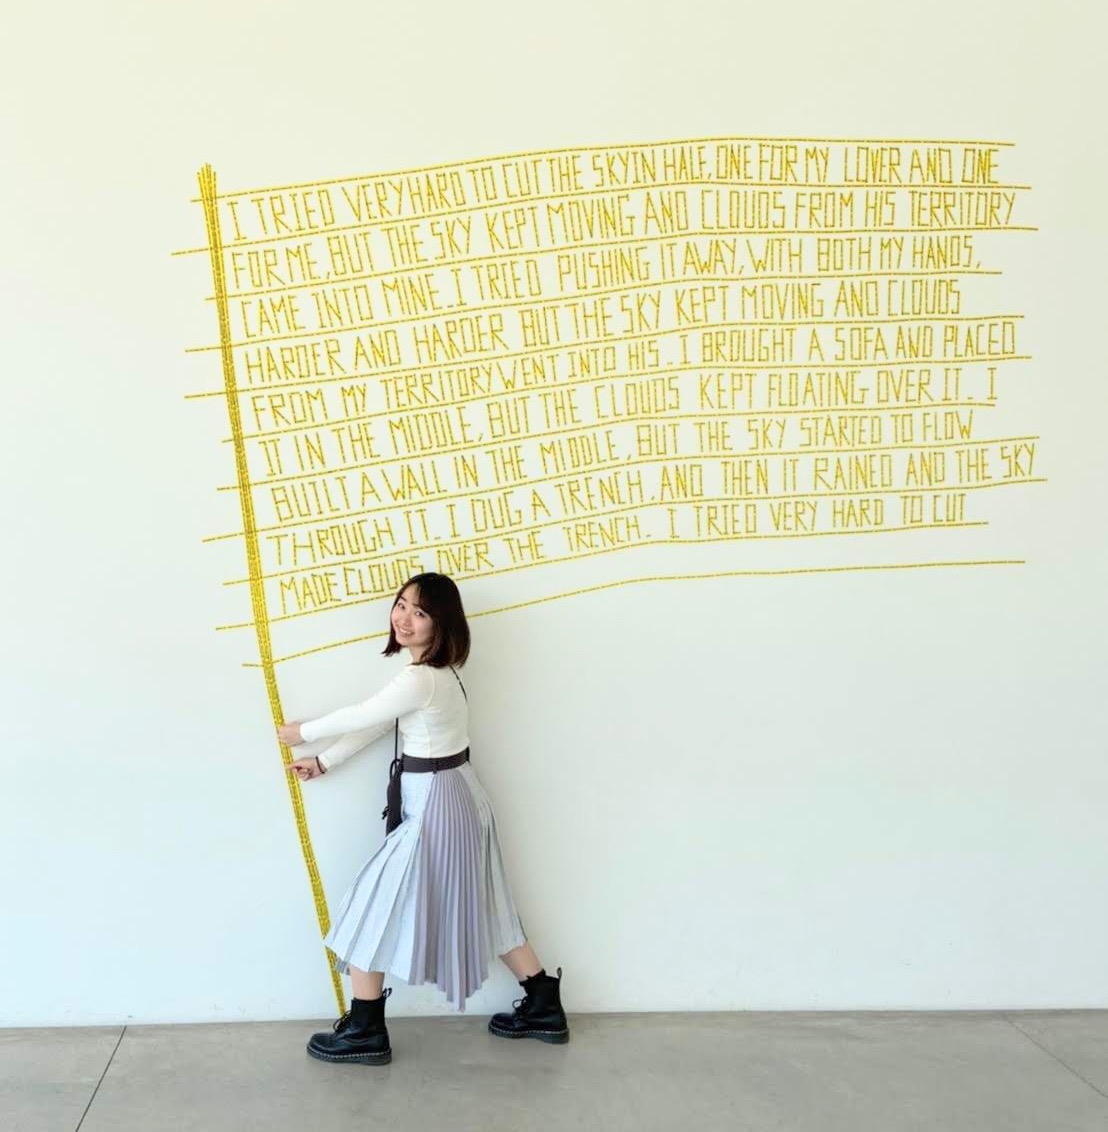 I TRIED VERY HARD TO CUT THE SKY IN HALF, ONE FOR MY LOVER AND ONE
FOR ME, BUT THE SKY KEPT MOVING AND CLOUDS FROM HIS TERRITORY
CAME INTO MINE. I TRIED PUSHING IT AWAY, WITH BOTH MY HANDS,
HARDER AND HARDER BUT THE SKY KEPT MOVING AND CLOUDS
FROM MY TERRITORY WENT INTO HIS. I BROUGHT A SOFA AND PLACED
IT IN THE MIDDLE, BUT THE CLOUDS KEPT FLOATING OVER IT. I
BUILT A WALL IN THE MIDDLE, BUT THE SKY STARTED TO FLOW
THROUGH IT. I DUG A TRENCH, AND THEN IT RAINED AND THE SKY
MADE CLOUDS OVER THE TRENCH. I TRIED VERY HARD TO CUT